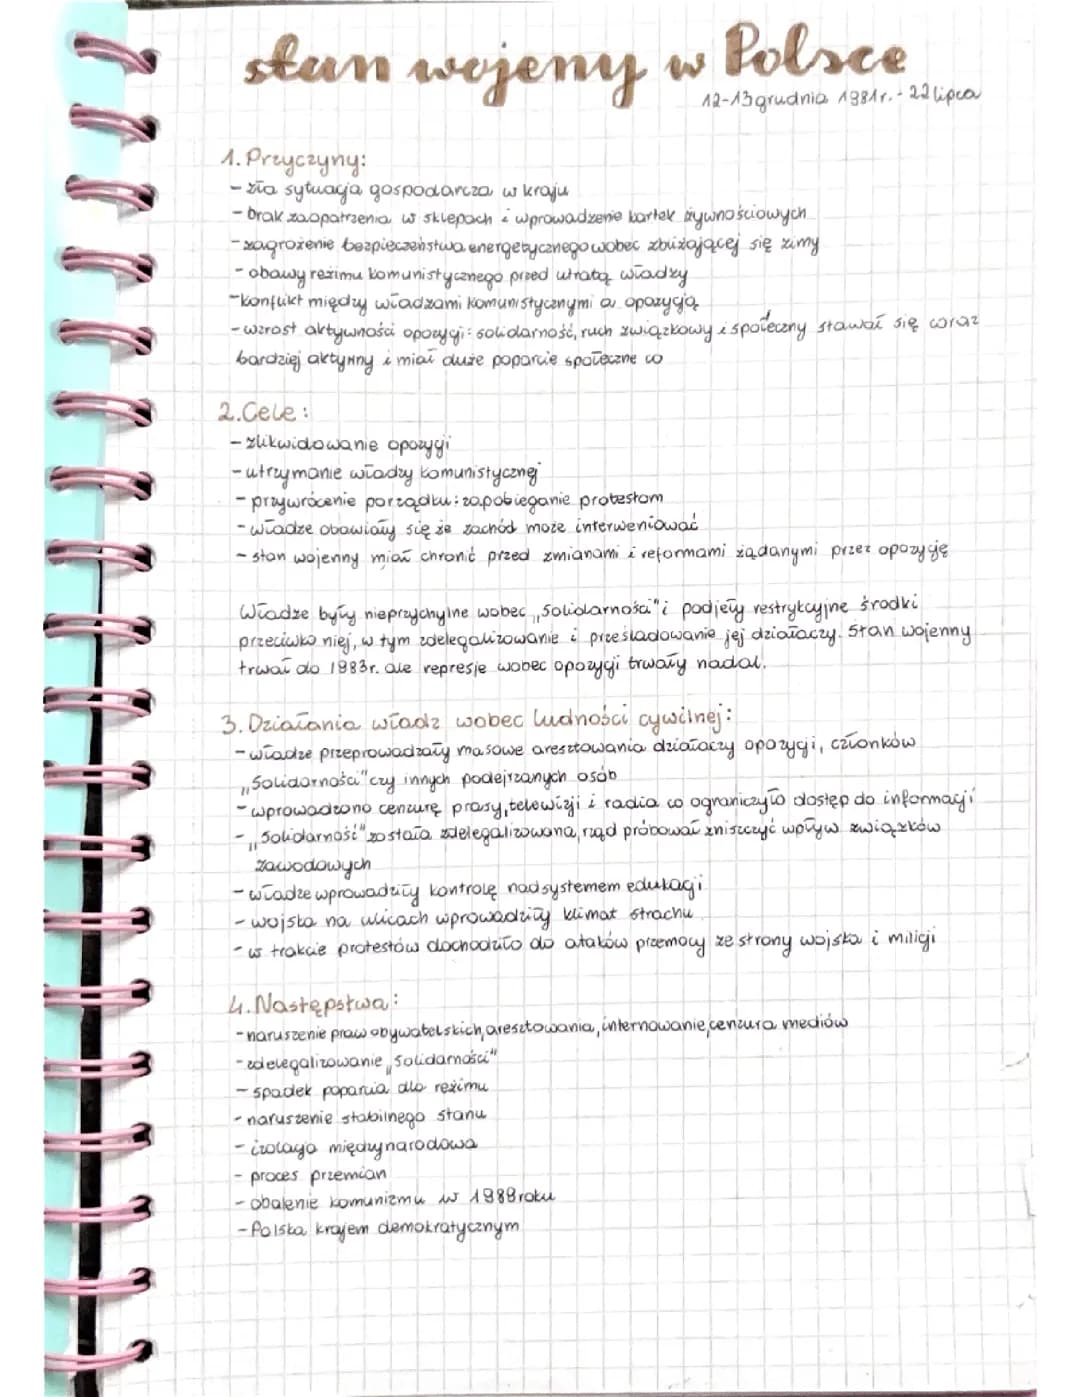 stan wojeny w Polsce
12-13 grudnia 1981r. - 22 lipca
1. Przyczyny:
- zła sytuacja gospodarcza w kraju
- brak zaopatrzenia w sklepach i wprowadzenie kartek żywnościowych
- zagrożenie bezpieczeństwa energetycznego wobec zbliżającej się zimy
- obawy reżimu komunistycznego przed utratą władzy
- konflikt między władzami komunistycznymi a opozycją
- wzrost aktywności opozycji: solidarność, ruch związkowy i społeczny stawał się coraz
bardziej aktywny i miał duże poparcie społeczne co
2. Cele:
- zlikwidowanie opozycji
- utrzymanie władzy komunistycznej
- przywrócenie porządku: zapobieganie protestom
- władze obawiały się że zachód może interweniować
- stan wojenny miał chronić przed zmianami i reformami żądanymi przez opozycję
Władze były nieprzychylne wobec „Solidarności" i podjęły restrykcyjne środki
przeciwko niej, w tym zdelegalizowanie i prześladowanie jej działaczy. Stan wojenny
trwał do 1983r. ale represje wobec opozycji trwały nadal.
3. Działania władz wobec ludności cywilnej:
- władze przeprowadzały masowe aresztowania działaczy opozycji, członków
„Solidarności" czy innych podejrzanych osób
- wprowadzono cenzurę prasy, telewizji i radia co ograniczyło dostęp do informacji
- „Solidarność" została zdelegalizowana, rząd próbował zniszczyć wpływ związków
zawodowych
- władze wprowadziły kontrolę nad systemem edukacji
- wojska na ulicach wprowadziły klimat strachu
- w trakcie protestów dochodziło do ataków przemocy ze strony wojska i milicji
4. Następstwa:
- naruszenie praw obywatelskich, aresztowania, internowanie, cenzura mediów
- zdelegalizowanie „Solidarności"
- spadek poparcia dla reżimu
- naruszenie stabilnego stanu
- izolacja międzynarodowa
- proces przemian
- obalenie komunizmu w 1989 roku
- Polska krajem demokratycznym